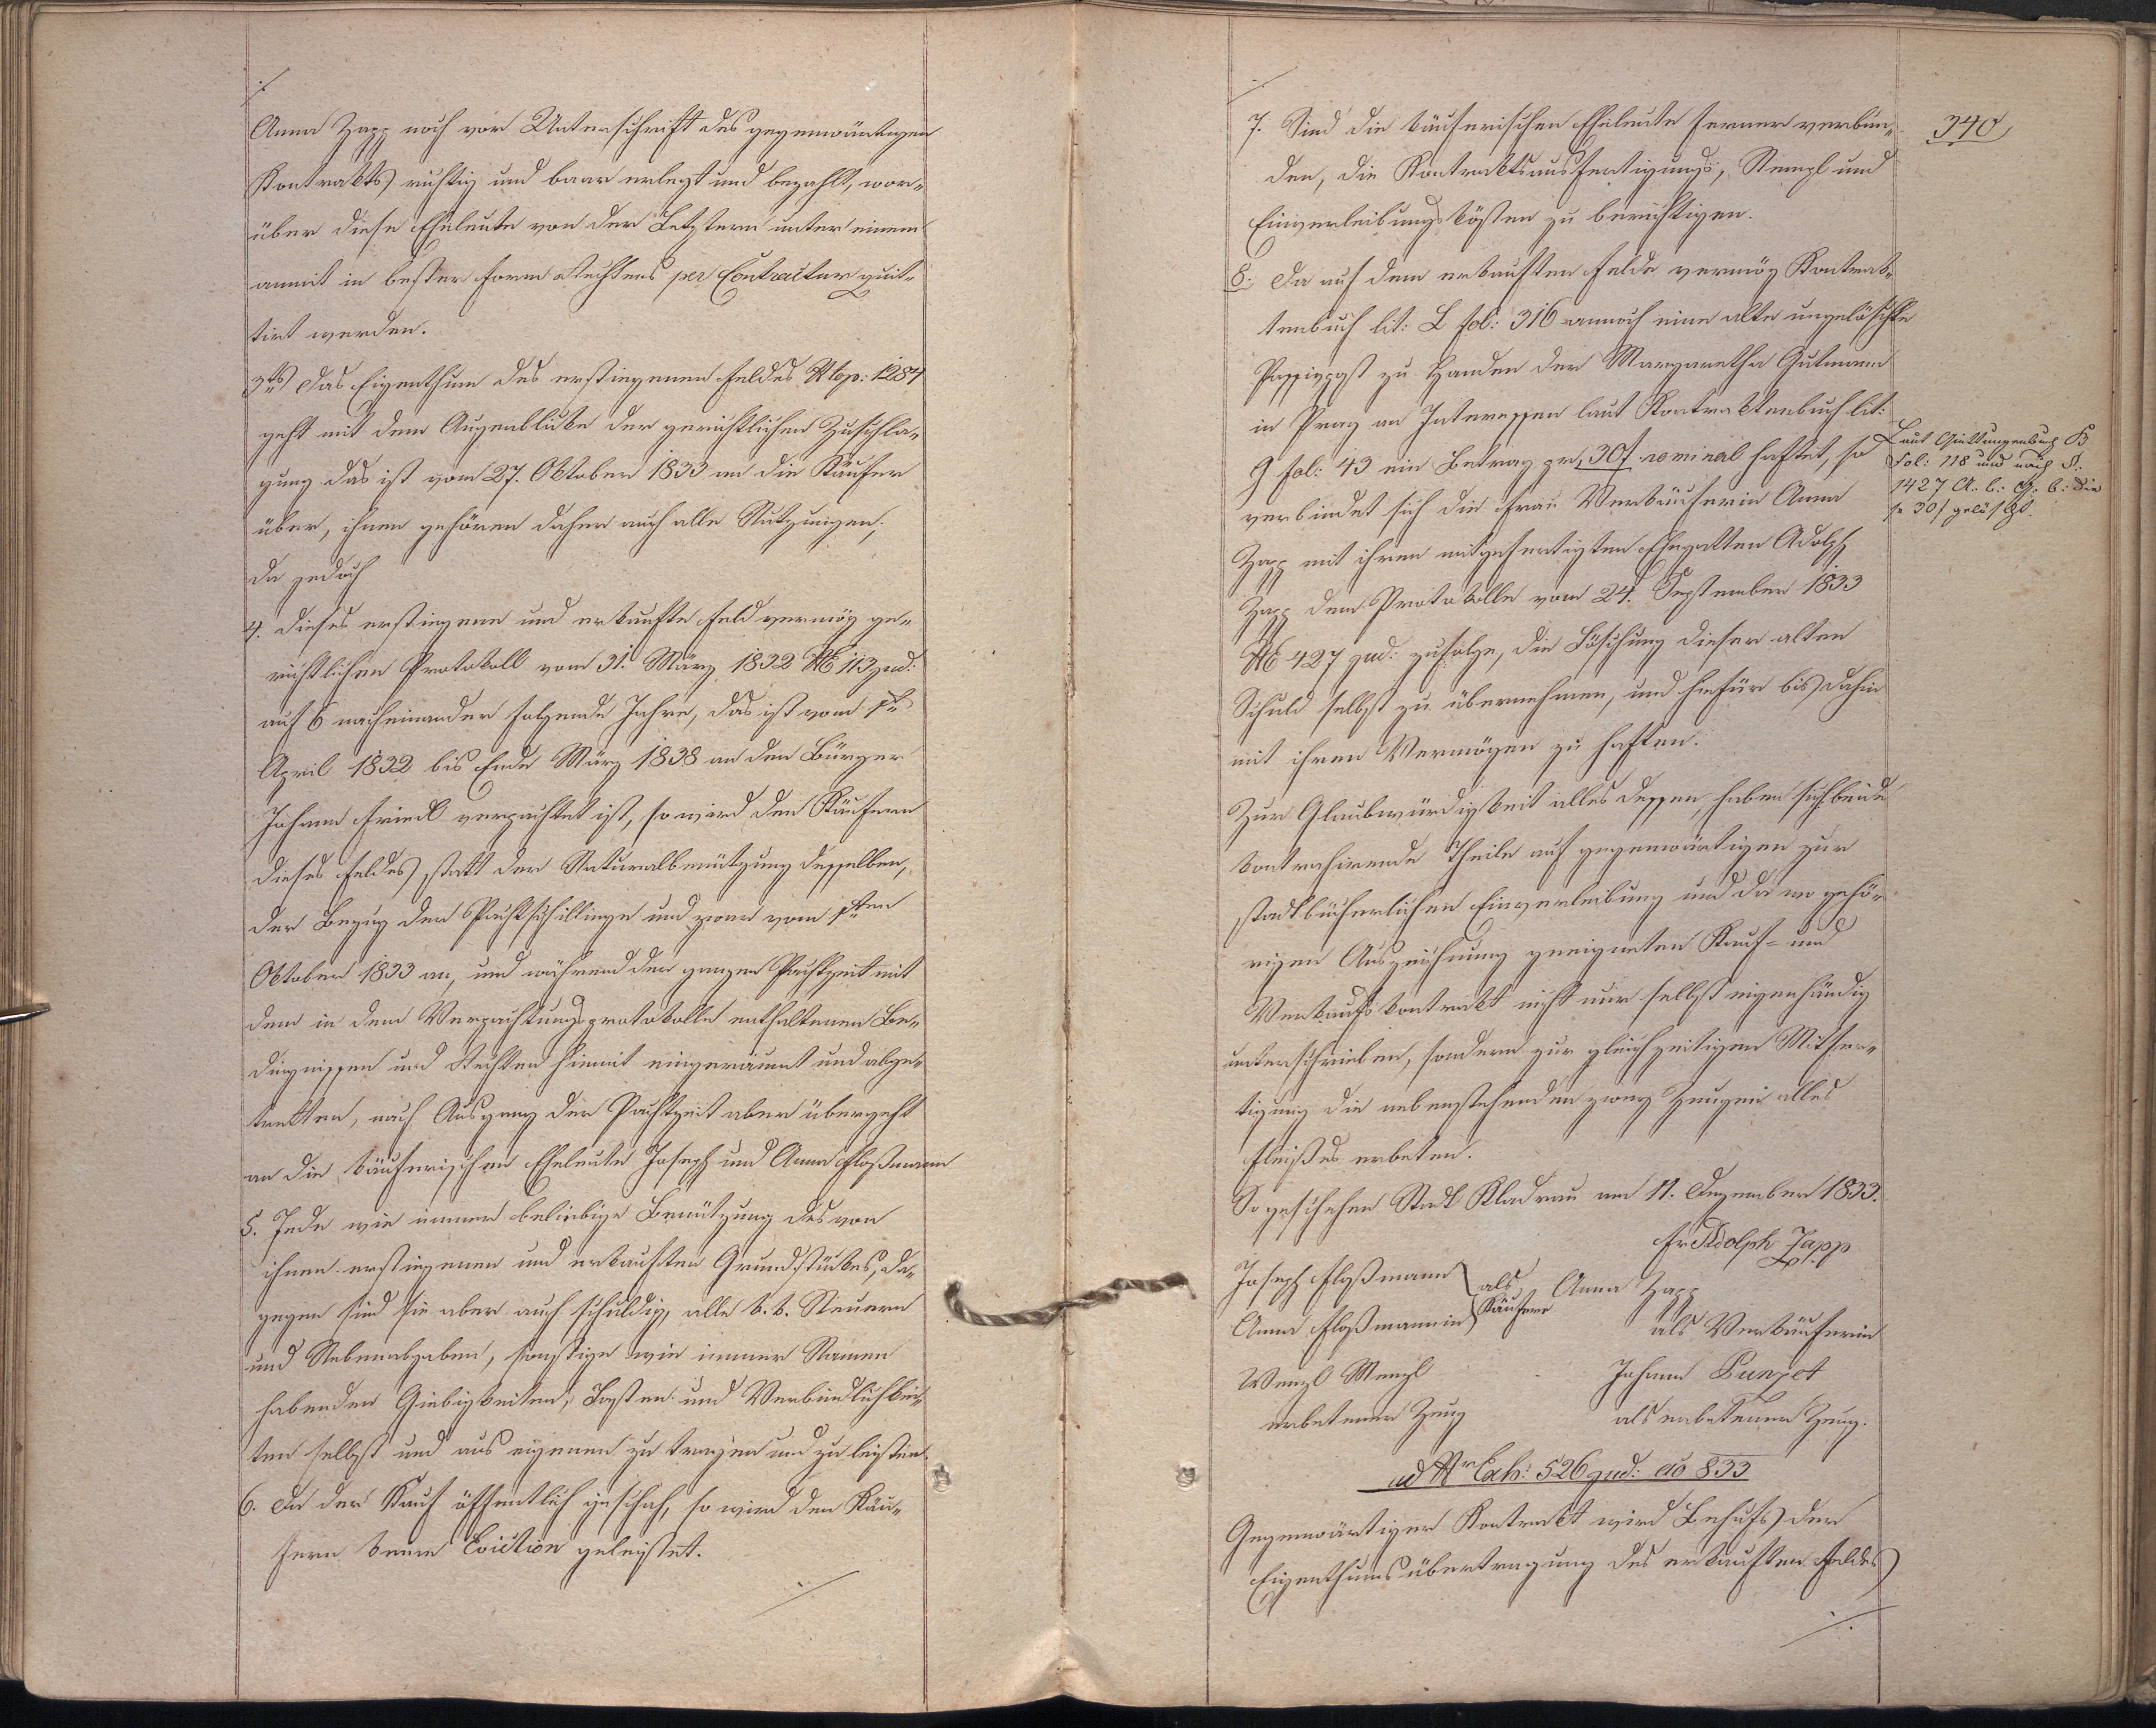 ./.
Anna Zapp noch vor Unterschrift des gegenwärtigen
Kontrakts richtig und baar erlegt und bezahlt, wor-
über diese Eheleute von der Letztern unter einem
anmit in bester Form Rechtens per Contractum quit-
tirt werden.
3tens Das Eigenthum des erstiegenen Feldes Nro top: 1284
geht mit dem Augenblicke der gerichtlichen Zuschla-
gung das ist vom 27. Oktober 1833 an die Käufer
über, ihnen gehören daher auch alle Nutzungen,
da jedoch
4. dieses erstiegene und erkaufte Feld vermög ge-
richtlichen Protokoll vom 31. März 1832 No 113 jud:
auf 6 nacheinander folgende Jahre, das ist vom 1ten
April 1832 bis Ende März 1838 an den Bürger
Johann Friedl verpachtet ist, so wird den Käufern
dieses Feldes statt der Naturalbenützung desselben,
der Bezug der Pachtschillinge und zwar vom 1ten
Oktober 1833 an, und während der ganzen Pachtzeit mit
den in dem Verpachtungsprotokolle enthaltenen Be-
dingnissen und Rechten hiemit eingeräumt und abge-
tretten, nach Ausgang der Pachtzeit aber übergeht
an die käuferischen Eheleute Joseph und Anna Floßmann
5. Jede wie immer beliebige Benützung des von
ihnen erstiegenen und erkauften Grundstückes, da-
gegen sind sie aber auch schuldig, alle k. k. Steuern
und Nebenabgaben, sonstige wie immer Namen
habenden Giebigkeiten, Lasten und Verbindlichkei-
ten selbst und aus eigenen zu tragen und zu leisten.
6. Da der Kauf öffentlich geschah, so wird den Käu-
fern keine Eviction geleistet.
./.
340
./.
7. Sind die käuferischen Eheleute ferner verbun-
den, die Kontraktsausfertigungs, Stempl und
Einverleibungskösten zu berichtigen.
8. Da auf dem erkauften Felde vermög Kontrak-
tenbuch lit: L fol: 316 annoch eine alte ungelöschte
Passivpost zu Handen der Margaretha Gutmann
in Prag an Interessen laut Kontraktenbuch lit:
9 fol: 43 ein Betrag pr 30f nominal haftet, so
verbindet sich die Frau Verkäuferin Anna
Zapp mit ihren mitgefertigten Ehegatten Adolph
Zapp dem Protokolle vom 24. September 1833
No 427 jud: zufolge, die Löschung dieser alten
Schuld selbst zu übernehmen, und hiefür bis dahin
mit ihren Vermögen zu haften.
Laut Quittungenbuch B
Fol: 118 und nach §.
1427 A. b: G: b: die
se 30f gelöscht.
Zur Glaubwürdigkeit alles dessen, haben sich beide
kontrahirende Theile auf gegenwärtigen zur
stadtbücherlichen Einverleibung und da wo gehö-
rigen Auszeichnung geeigneten Kauf- und
Verkaufskontrakt nicht nur selbst eigenhändig
unterschrieben, sondern zur gleichzeitigen Mitfer-
tigung die nebenstehenden zwey Zeugen alles
Fleißes erbeten.
So geschehen Stadt Kladrau am 11. Dezember 1833.
Fr Adolph Zapp
Joseph Floßmann
Anna Floßmannin
als
Käufere
Anna Zapp
als Verkäuferin
Wenzl Menzl
erbetener Zeug
Johann Punzet
als erbetener Zeug.
ad Nr Exh: 526 jud: do 833
Gegenwärtiger Kontrakt wird Behufs der
Eigenthumsübertragung des erkauften Feldes
./.